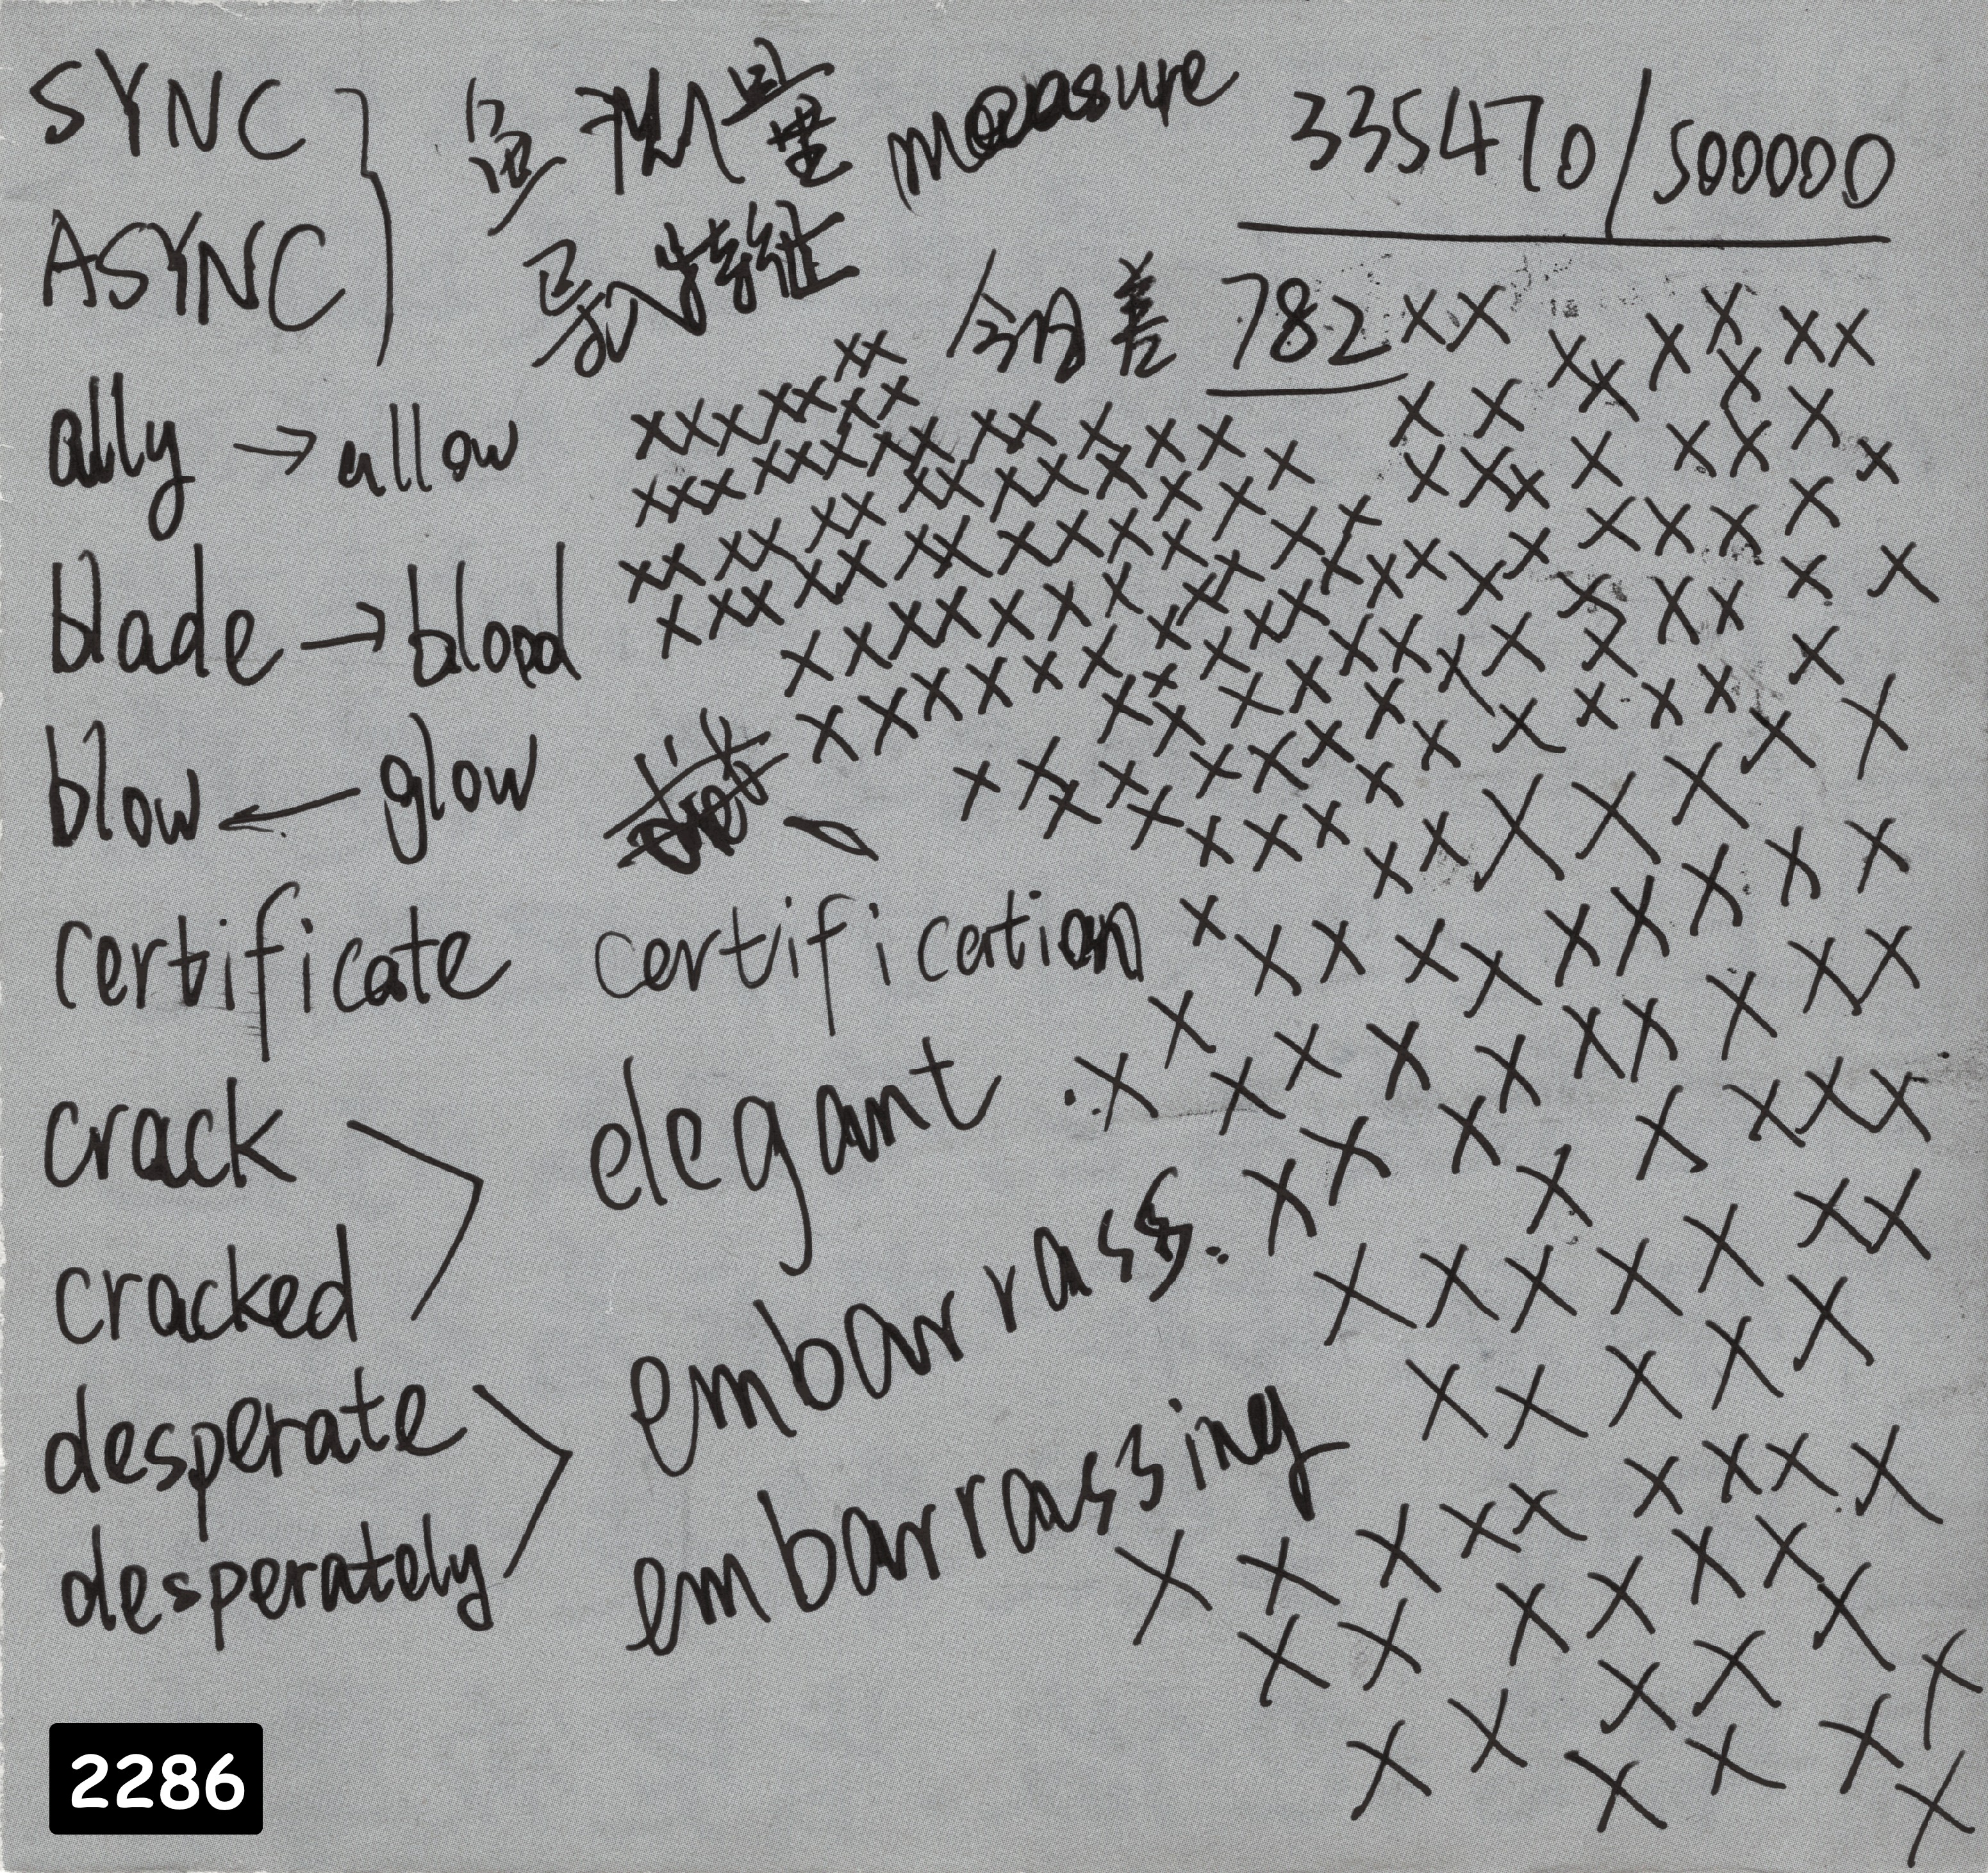 SYNC
ASYNC
测量 measure
335470/500000
特征
今日差 782
ally → allow
blade → blood
blow ← glow
certificate certification
crack
cracked
elegant
embarrass.
desperate
desperately
embarrassing
2286